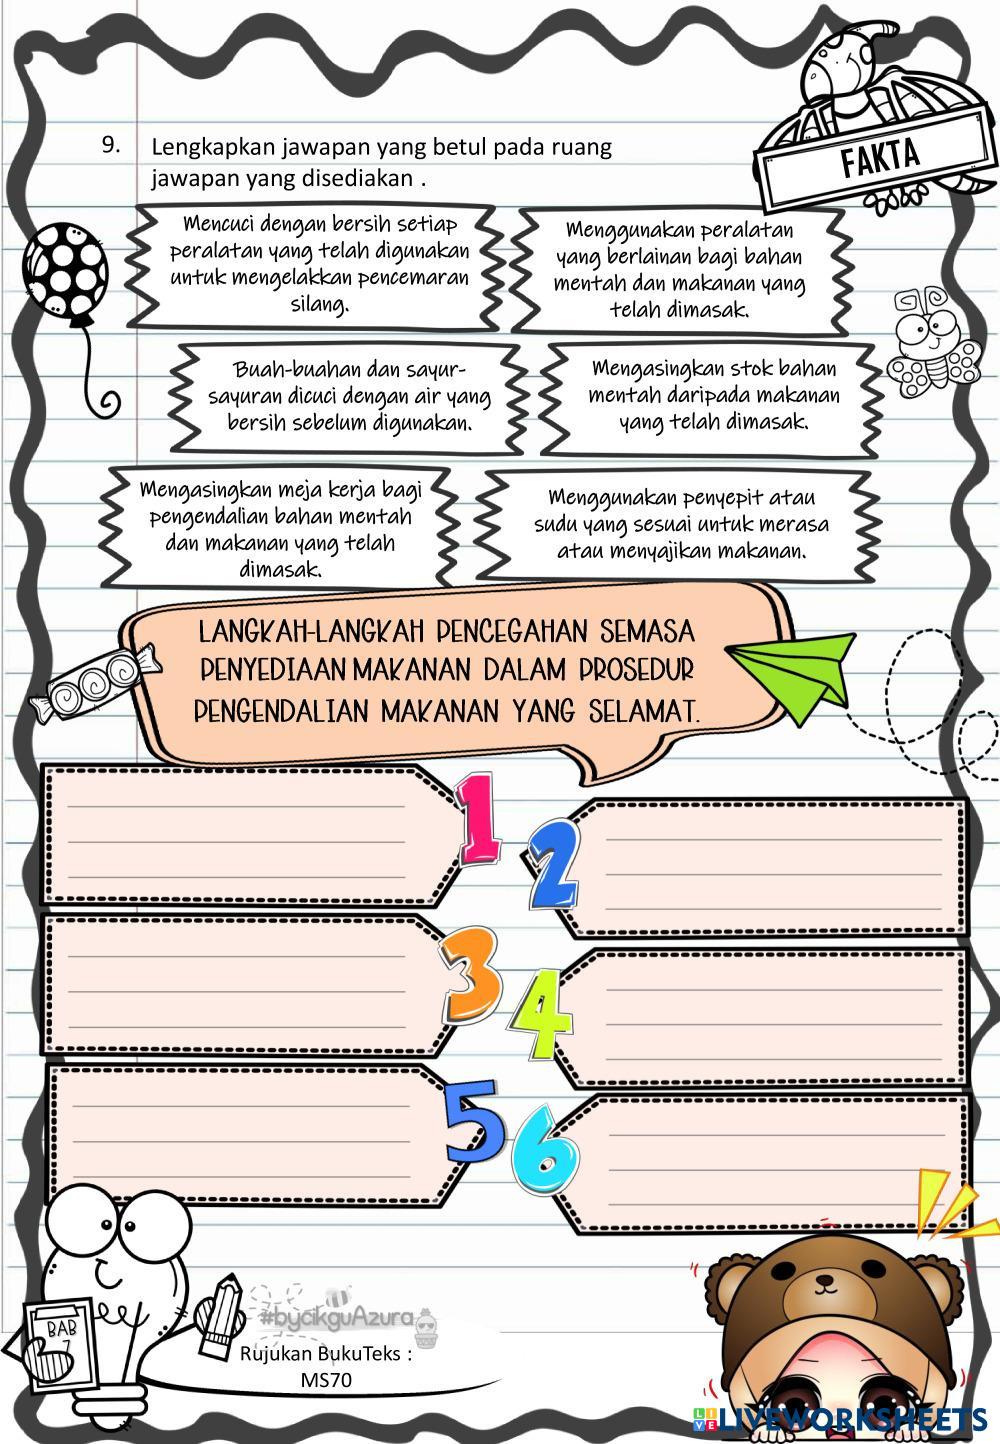 FAKTA
9. Lengkapkan jawapan yang betul pada ruang
jawapan yang disediakan .
Mencuci dengan bersih setiap
peralatan yang telah digunakan
untuk mengelakkan pencemaran
silang.
Menggunakan peralatan
yang berlainan bagi bahan
mentah dan makanan yang
telah dimasak.
Buah-buahan dan sayur-
sayuran dicuci dengan air yang
bersih sebelum digunakan.
Mengasingkan stok bahan
mentah daripada makanan
yang telah dimasak.
Mengasingkan meja kerja bagi
pengendalian bahan mentah
dan makanan yang telah
dimasak.
Menggunakan penyepit atau
sudu yang sesuai untuk merasa
atau menyajikan makanan.
LANGKAH-LANGKAH PENCEGAHAN SEMASA
PENYEDIAAN MAKANAN DALAM PROSEDUR
PENGENDALIAN MAKANAN YANG SELAMAT.
1
2
3
4
5
6
BAB
7
#bycikguAzura
Rujukan BukuTeks :
MS70
LIVEWORKSHEETS